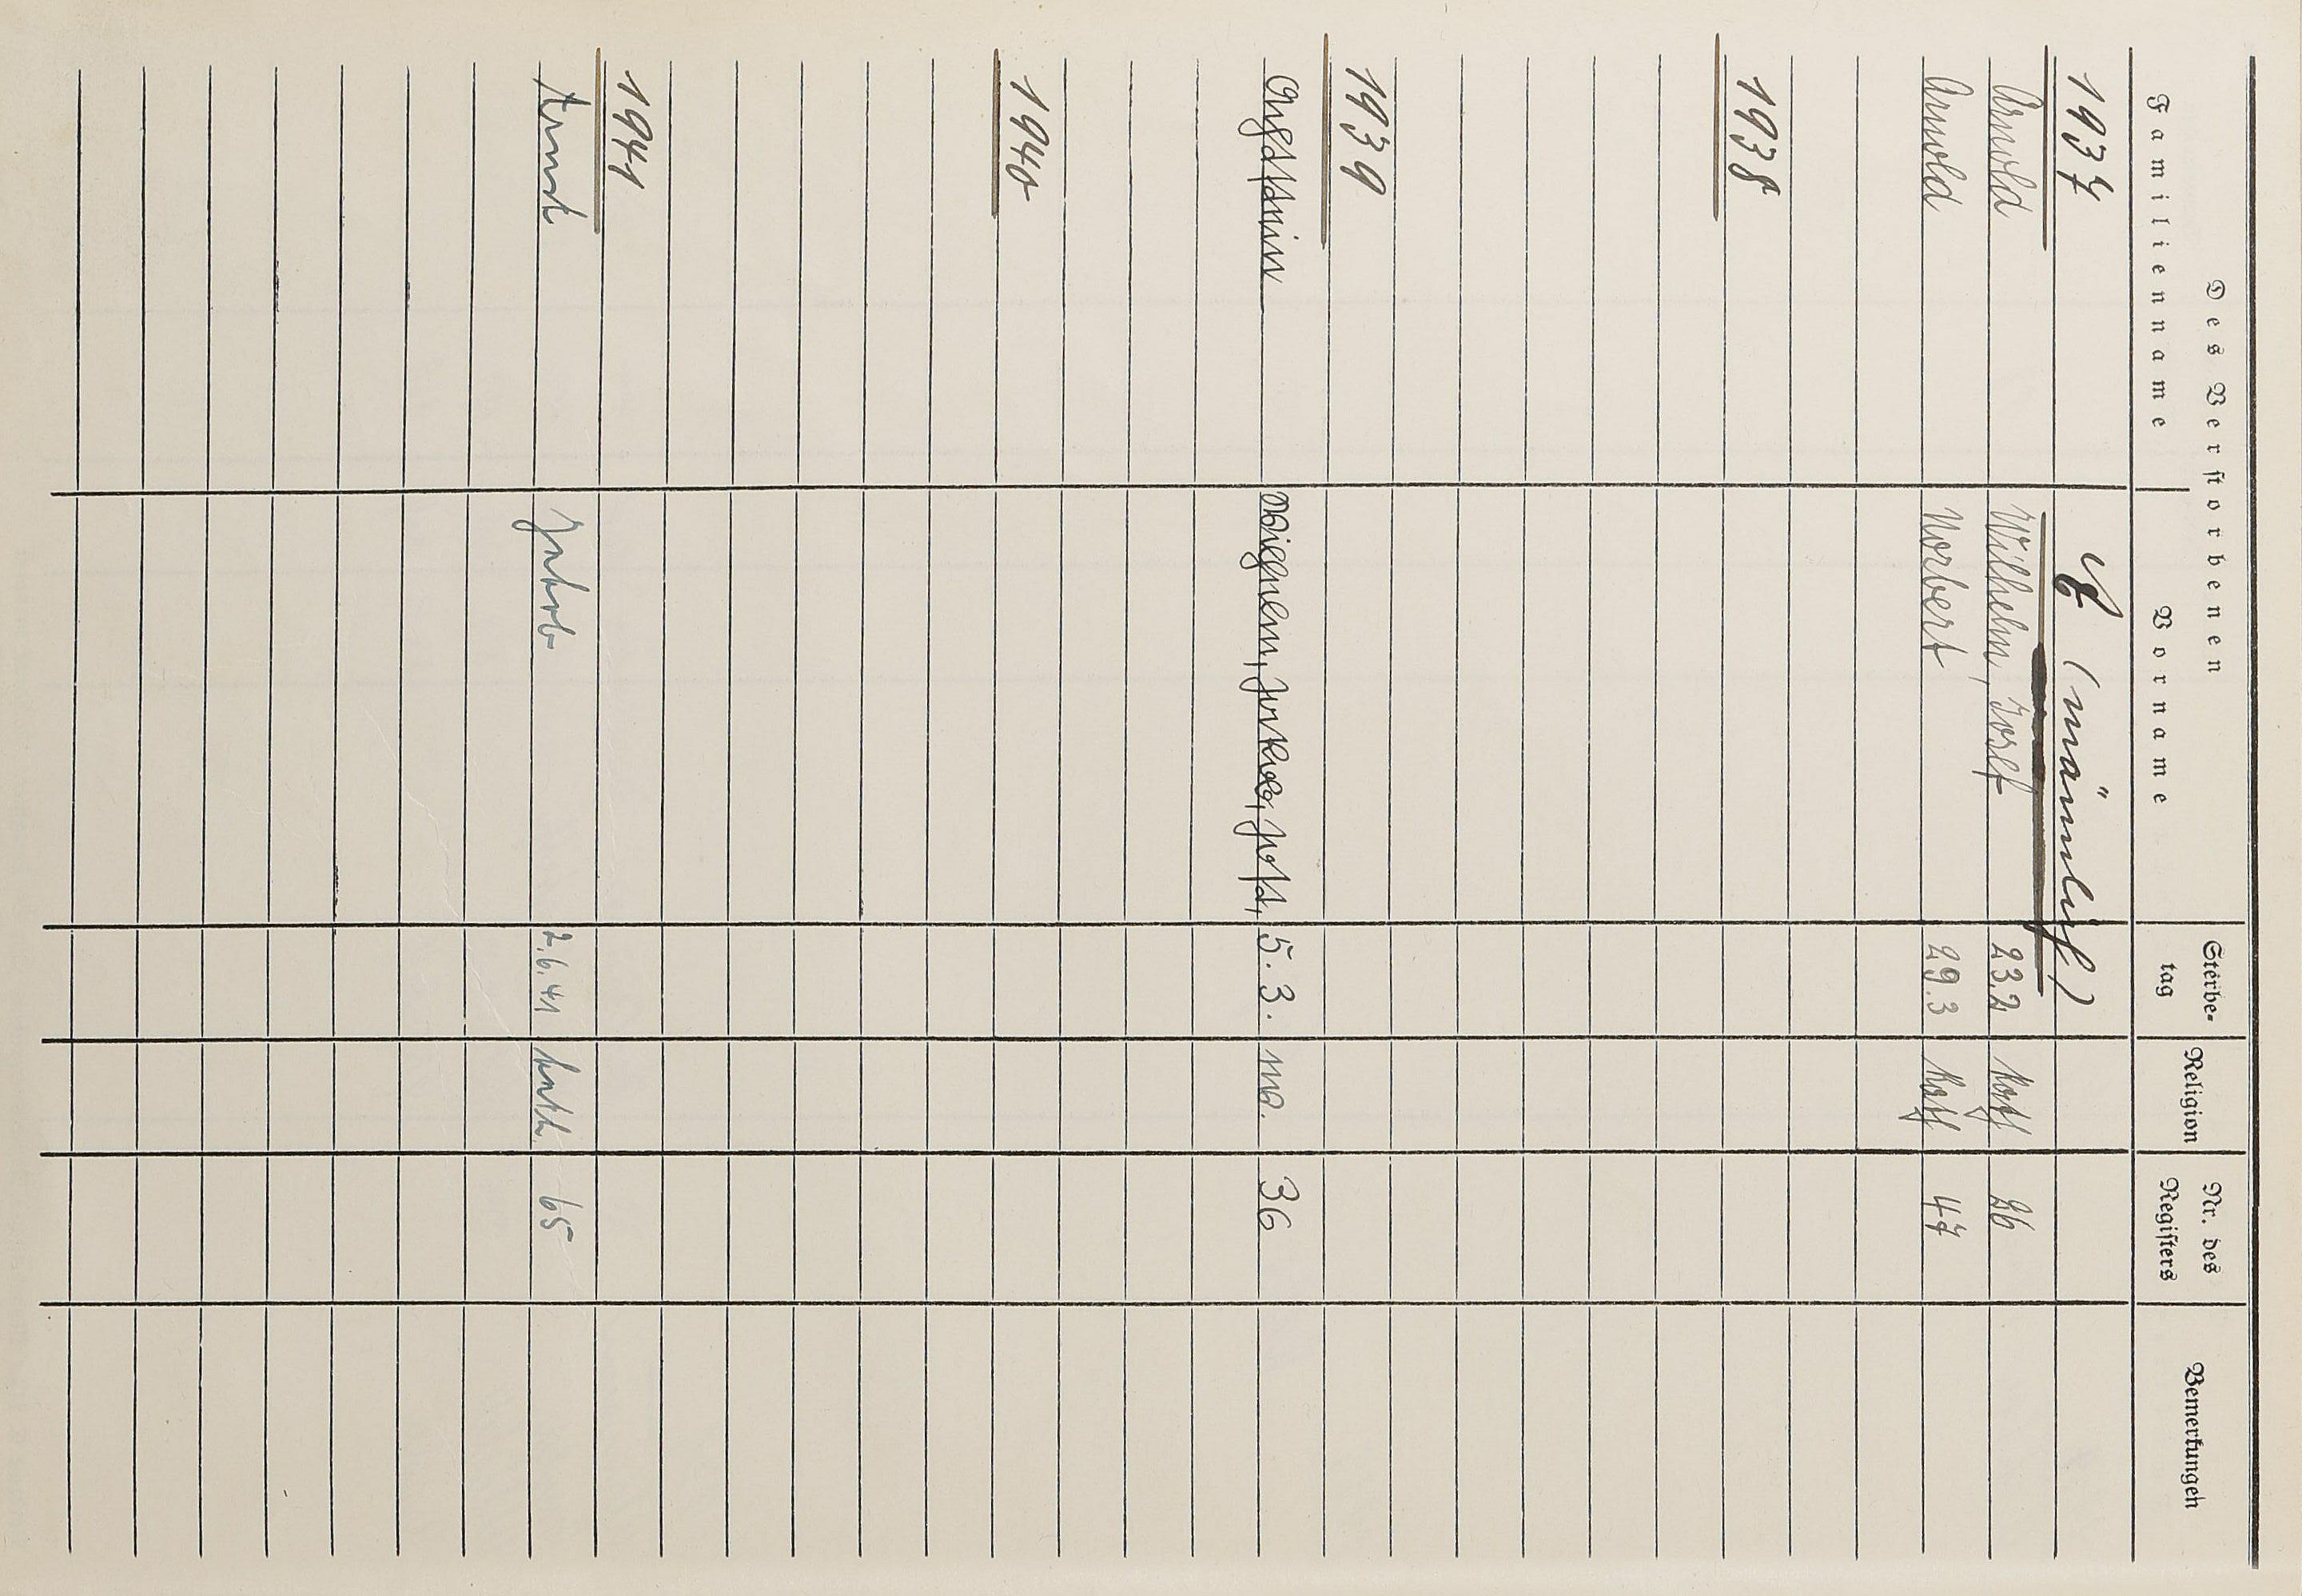 Des Verstorbenen
Familienname Vorname Sterbe-tag Religion Nr. des Registers Bemerkungen
1937 (männlich)
Arnold Wilhelm, Josef 23.2 kath 26
Arnold Norbert 29.3 kath 47
1938
1939
5.3. 36
1940
1941
Arndt Jakob 2.6.41 kath. 65